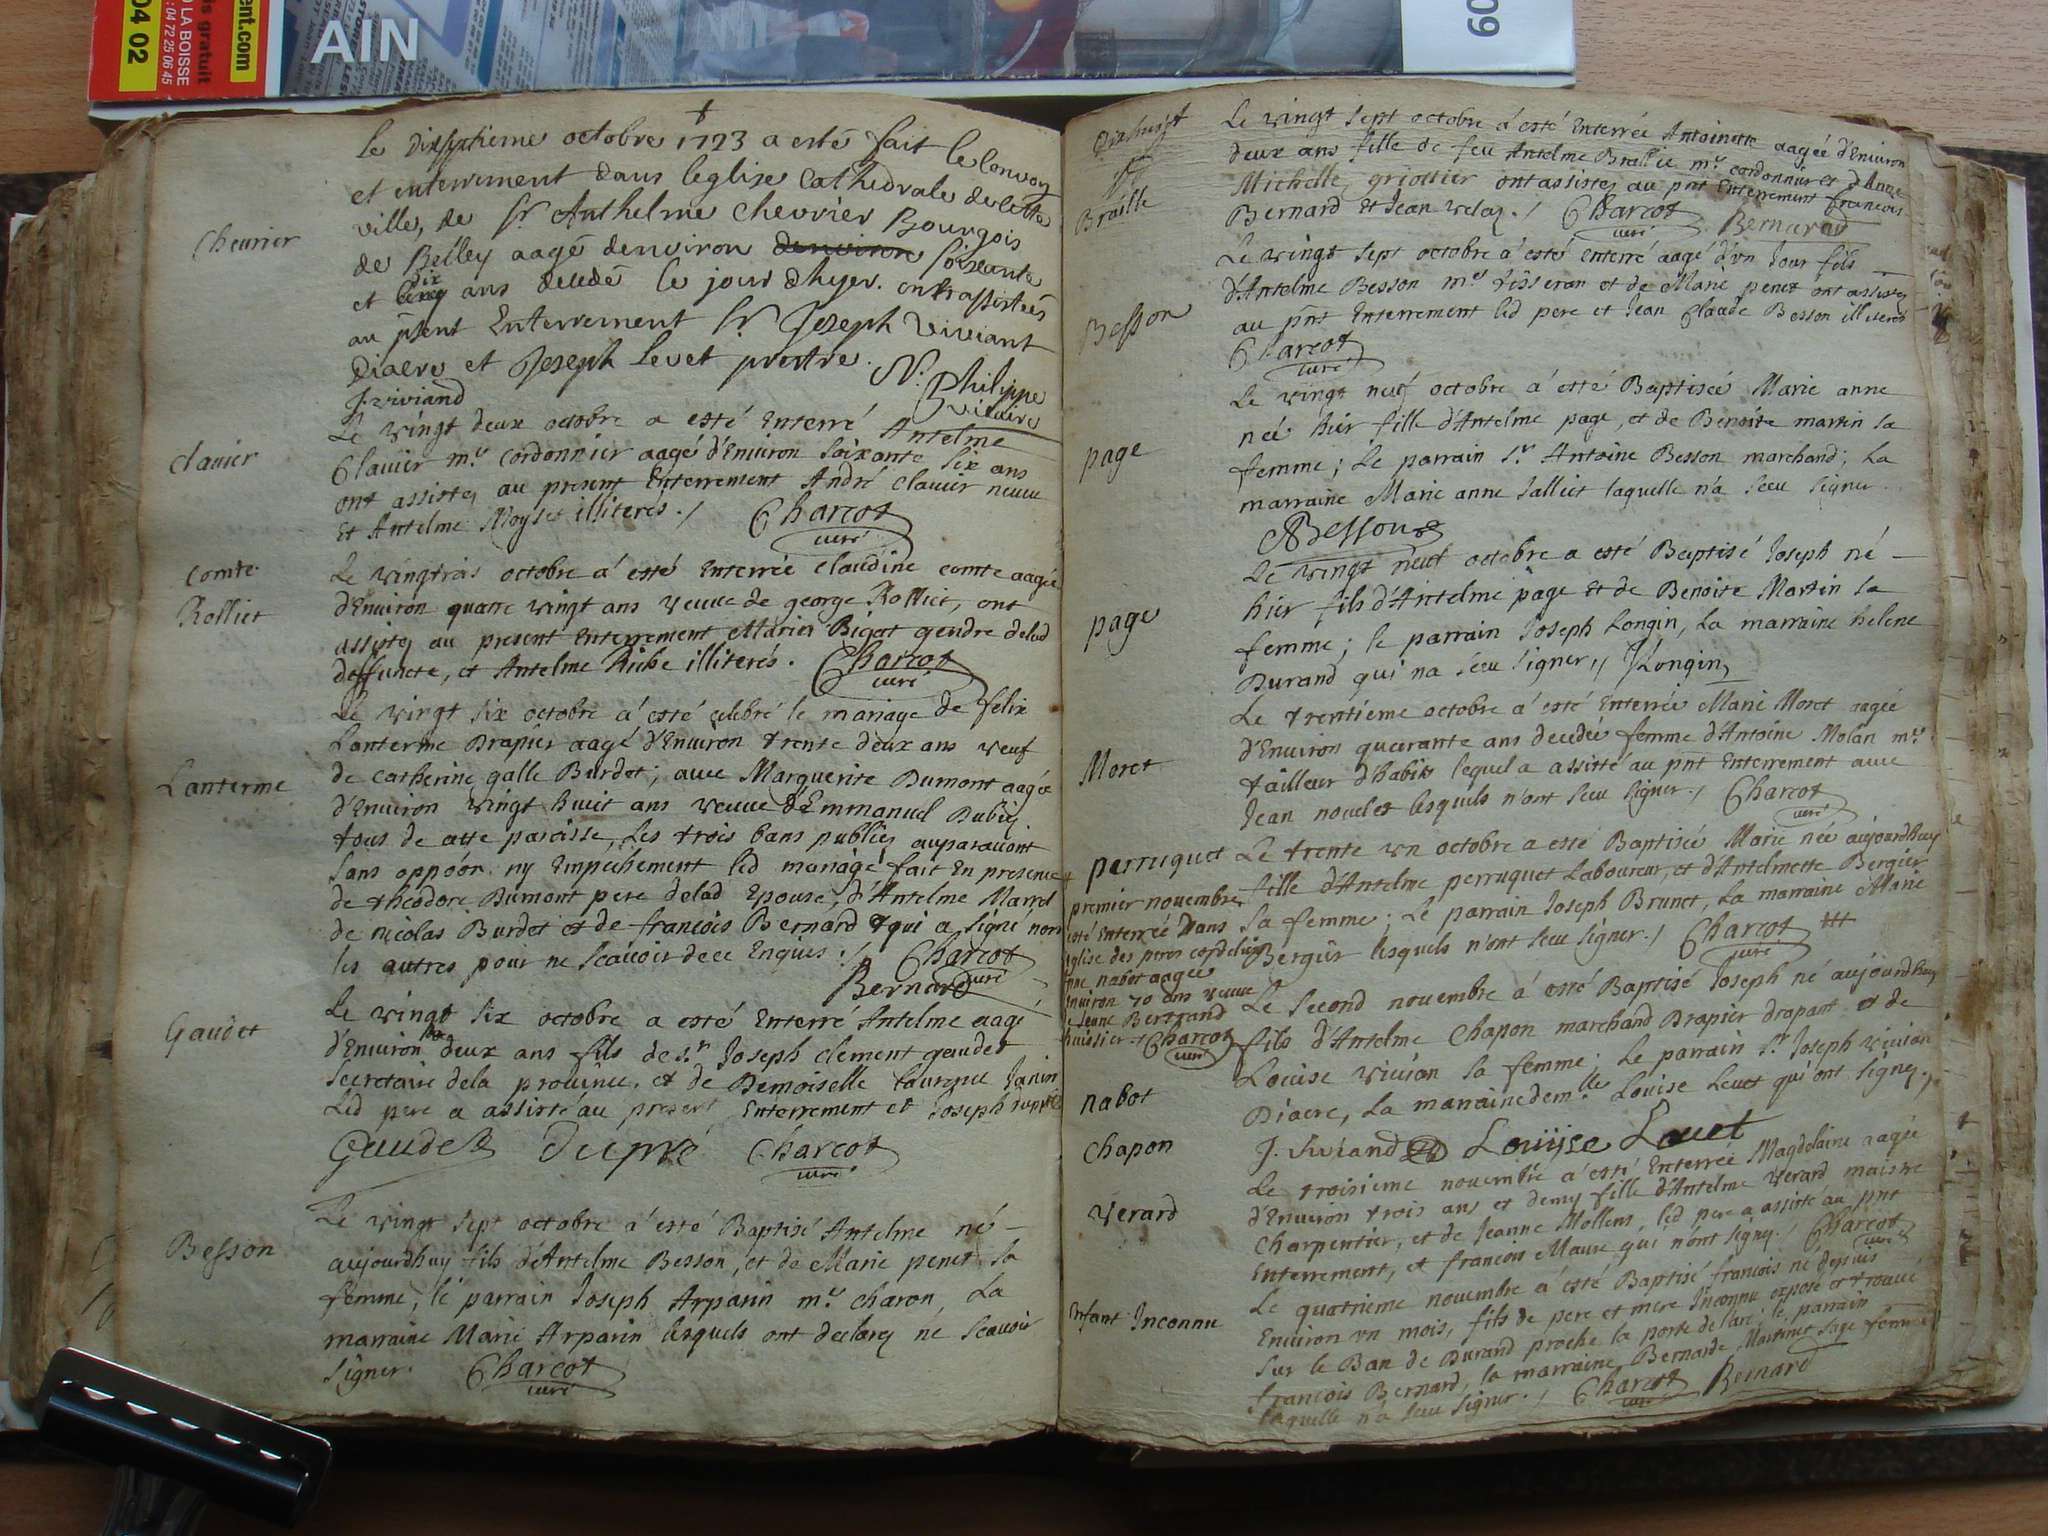 ent.com
is gratuit
LA BOISSE
: 04 72 25 06 45
04 02
AIN
09
†
le dixseptieme octobre 1723 a esté fait le Convoy
et enterrement dans leglise Cathedrale de cette
ville, de Sr Anthelme Chevrier Bourgois
de Belley aagé denviron denviron soixante
et dix cinq ans decedé le jour dhyer. ont assistés
au pñent Enterrement Sr Joseph Viviant
Diacre et Joseph Levet prestre.
J. viviand
N. Philippe
vicaire
Chevrier
Le vingt deux octobre a esté Enterré Antelme
Clavier mre cordonnier aagé d'Environ soixante six ans
ont assistez au present Enterrement André clavier neveu
Et Antelme Moyset illiterés ./ Charcot
curé
clavier
Le vingtrois octobre a esté Enterrée claudine comte aagée
d'Environ quatre vingt ans veuve de george Rolliet, ont
assistez au present Enterrement Marin Bigot gendre delad
deffuncte, et Antelme Riche illiterés. Charcot
curé
comte
Rolliet
Le vingt six octobre a esté celebré le mariage de felix
Lanterme Drapier aagé d'Environ trente deux ans veuf
de catherine galle Burdet; avec Marguerite Dumont aagée
d'Environ vingt huit ans veuve d'Emmanuel Dubiez
tous de cette paroisse, Les trois bans publiez auparavant
sans oppóon. ny Empechement led mariage fait En presence
de theodore Dumont pere delad Epouse, d'Antelme Marrel
de nicolas Burdet et de françois Bernard qui a signé non
les autres pour ne scavoir de ce Enquis ./ Charcot
curé
Bernard
Lanterme
Le vingt six octobre a esté Enterré Antelme aagé
d'Environ deux ans fils de s.r Joseph clement gaudet
secretaire dela province, et de Demoiselle laurence Janin
Led pere a assisté au present Enterrement et Joseph dupré
Gaudet Dupré Charcot
curé
Gaudet
Le vingt sept octobre a esté Baptisé Antelme né —
aujourdhuy fils d'Antelme Besson, et de Marie penet sa
femme, le parrain Joseph Arparin mre charon, La
marraine Marie Arparin lesquels ont declarez ne scavoir
signer. Charcot
curé
Besson
Le vingt sept octobre a esté Enterrée Antoinette aagée d'Environ
deux ans fille de feu Antelme Braille mre cordonnier et d'Anne
Michelle griottier ont assistez au pnt Enterrement françois
Bernard Et Jean velaz ./ Charcot Bernard
curé
Braille
Le vingt sept octobre a esté enterré aagé d'vn Jour fils —
d'Antelme Besson mre tisseran et de Marie penet ont assistez
au pñt Enterrement led pere et Jean Claude Besson illiterés
Charcot
curé
Besson
Le vingt neuf octobre a esté Baptisée Marie anne
née hier fille d'Antelme page, et de Benoite martin sa
femme; Le parrain s.r Antoine Besson marchand; La
marraine Marie anne salliet laquelle n'a sceu signer.
ABesson
page
Le vingt neuf octobre a esté Baptisé Joseph né —
hier fils d'Antelme page Et de Benoite Martin sa
femme; le parrain Joseph Longin, La marraine helene
Durand qui na sceu signer // JLongin
page
Le trentieme octobre a esté Enterrée Marie Moret aagée
d'Environ quarante ans decedée femme d'Antoine Molan mre
tailleur d'habits lequel a assisté au pnt Enterrement avec
Jean novelet lesquels n'ont sceu signer ./ Charcot
curé
Moret
Le trente vn octobre a esté Baptisée Marie née aujourdhuy
fille d'Antelme perruquet Laboureur, et d'Antelmette Bergier
sa femme; Le parrain Joseph Brunet, La marraine Marie
Bergier lesquels n'ont sceu signer ./ Charcot
curé
perruquet
premier novembre
esté Enterrée Dans
eglise des peres cordeliers
nabot aagée
Environ 70 ans veuve
de Jeanne Bertrand
huissier - Charcot
curé
nabot
Le second novembre a esté Baptisé Joseph né aujourdhuy
fils d'Antelme Chapon marchand Drapier drapant et de
Louise vivian sa femme. Le parrain s.r Joseph vivian
Diacre, La marraine dem.lle Louise Levet qui ont signez.
J. Viviand Louijse Levet
Chapon
Le troisieme novembre a esté Enterrée Magdelaine aagée
d'Environ trois ans et demy fille d'Antelme verard maistre
charpentier, et de Jeanne Mollens, led pere a assisté au pnt
Enterrement, et françois Maure qui n'ont signez ./ Charcot
curé
verard
Le quatrieme novembre a esté Baptisé francois né depuis
Environ vn mois, fils de pere et mere Inconnu exposé et trouvé
sur le Ban de Durand proche la porte de lar; le parrain
françois Bernard, la marraine Bernarde Martinet sage femme
laquelle n'a sceu signer ./ Charcot Bernard
curé
Enfant Inconnu